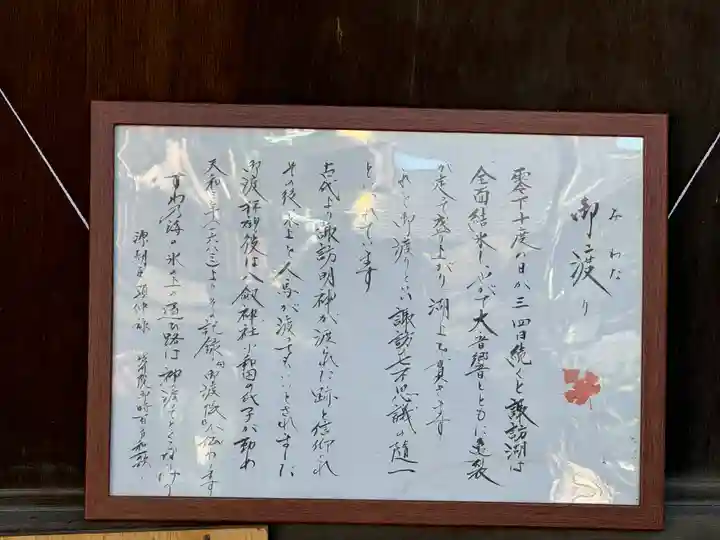 御渡り
おわた
零下十度の日が三四日続くと諏訪湖は
全面結氷しやがて大音響とともに亀裂
が走って盛り上がり湖上を貫きます
れを御渡りといい諏訪七不思議の随一
といわれています
古代より諏訪明神が渡られた跡と信仰され
その後氷上を人馬が渡ってもいいとされました
御渡拝観後は八剱神社小和田の氏子が勤め
天和三年(一六八三)よりその記録 御渡帳が伝わります
すわの海の氷の上の通ひ路は神の渡りてとくるなりけり
源顕仲 堀河院御時百首和歌